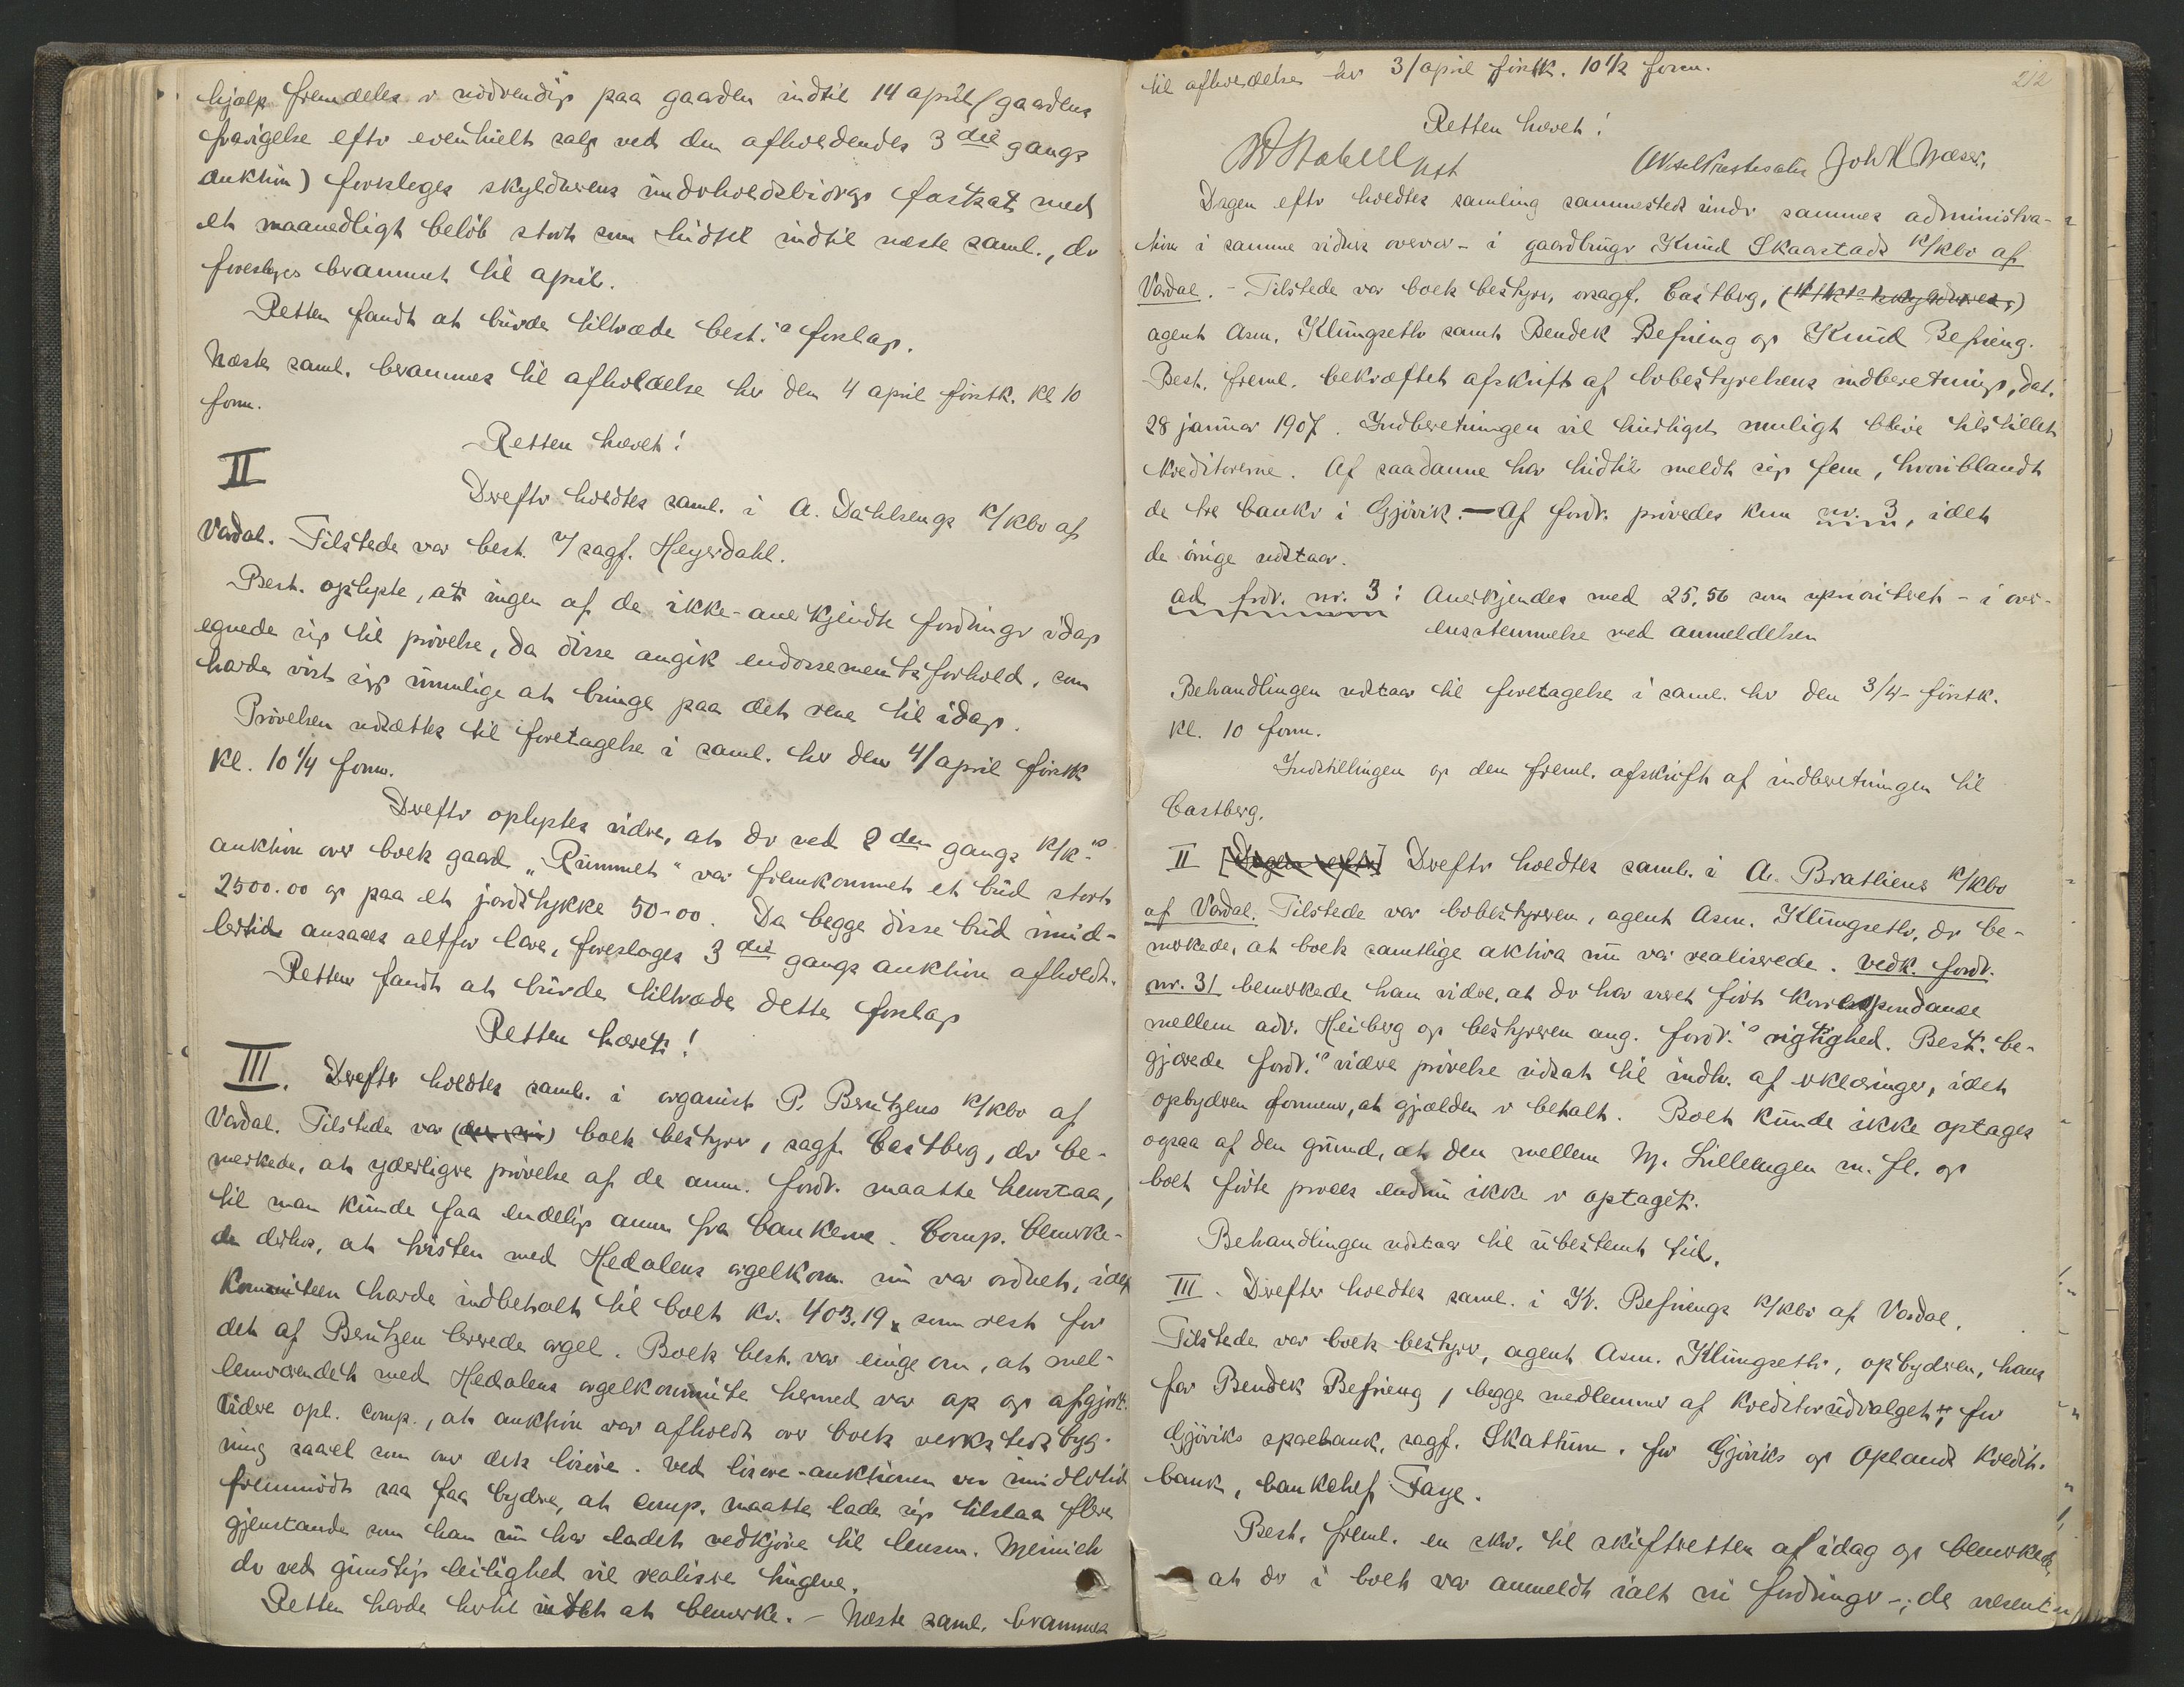 hjælp fremdeles er nødvendig paa gaarden indtil 14 april (gaardens
fravigelse efter eventuelt salg ved den afholdendes 3die gangs
auktion) foresloges skyldnerens underholdsbidrag fastsat med
et maanedligt beløb stort som hidtil indtil næste saml., der
foresloges berammet til april.
Retten fandt at burde tiltræde best.'s forslag.
Næste saml. berammes til afholdelse her den 4 april førstk. kl 10
form.
Retten hævet!
II
Derefter holdtes saml. i A. Dahlsengs k/kbo af
Vardal. Tilstede var best. o/sagf. Heyerdahl.
Best. oplyste, at ingen af de ikke-anerkjendte fordringer idag
egnede sig til prøvelse, da disse angik endossementsforhold, som
havde vist sig umulige at bringe paa det rene til idag.
Prøvelsen udsættes til foretagelse i saml. her den 4/april førstk
kl. 10 1/4 form.
Derefter oplystes videre, at der ved 2den gangs k/k's
auktion over boets gaard "Rummet" var fremkommet et bud stort
2500.00 og paa et jordstykke 50-00. Da begge disse bud imid-
lertid ansaaes altfor lave, foresloges 3die gangs auktion afholdt.
Retten fandt at burde tiltræde dette forslag
Retten hævet!
III. Derefter holdtes saml. i organist P. Bentzens k/kbo af
Vardal. Tilstede var boets bestyrer, sagf. Castberg, der be-
merkede, at yderligere prøvelse af de anm. fordr. maatte henstaa,
til man kunde faa endelig anm fra bankerne. Comp. bemerke-
de derhos, at tvisten med Hedalens orgelkom. nu var ordnet, idet
Kommiteen havde indbetalt til boet kr. 403.19, som rest for
det af Bentzen leverede orgel. Boets best. var enige om, at mel-
lemværendet med Hedalens orgelkommite hermed var op og afgjort.
Videre opl. comp., at auktion var afholdt over boets verkstedsbyg-
ning saavel som over dets løsøre. Ved løsøre-auktionen var imidlertid
fremmødt saa faa bydere, at comp. maatte lade sig tilslaa flere
gjenstande som han nu har ladet nedkjøre til lensm. Meinich
der ved gunstig leilighed vil realisere tingene.
Retten havde hertil intet at bemerke. – Næste saml. berammes
til afholdelse her 3/april førstk. 10 1/2 form.
212
Retten hævet!
Joh H Næser.
Dagen efter holdtes samling sammesteds under sammes administra-
tion i samme vidners overvær – i gaardbruger Knud Skaarstads k/kbo af
Vardal. – Tilstede var boets bestyrer, orsagf. Castberg,
agent Asm. Klungseth samt Bendek Befring og Knud Befring.
Best. freml. bekræftet afskrift af bobestyrelsens indberetning, dat.
28 januar 1907. Indberetningen vil hurtigst muligt blive tilstillet
kreditorerne. Af saadanne har hidtil meldt sig fem, hvoriblandt
de tre banker i Gjøvik. – Af fordr. prøvedes kun nr. 3, idet
de øvrige udstaar.
ad fordr. nr. 3: Anerkjendes med 25,56 som uprioritert – i over-
ensstemmelse med anmeldelsen
Behandlingen udstaar til foretagelse i saml. her den 3/4 – førstk.
kl. 10 form.
Indstillingen og den freml. afskrift af indberetningen til
Castberg.
II [Dagen efter] Derefter holdtes saml. i A. Bratliens k/kbo
af Vardal. Tilstede var bobestyreren, agent Asm. Klungseth, der be-
merkede, at boets samtlige aktiva nu var realiserede. Vedk. fordr.
nr. 31 bemerkede han videre, at der har været ført korrespondance
mellem adv. Heiberg og bestyreren ang. fordr.'s rigtighed. Best. be-
gjærede fordr.'s videre prøvelse udsat til indh. af erklæringer, idet
opbyderen formener, at gjælden er betalt. Boet kunde ikke optages
ogsaa af den grund, at den mellem M. Lillengen m. fl. og
boet førte proces endnu ikke er optaget.
Behandlingen udstaar til ubestemt tid.
III. Derefter holdtes saml. i K. Befrings k/kbo af Vardal.
Tilstede var boets bestyrer, agent Asm. Klungseth, opbyderen, hans
far Bendek Befring, begge medlemmer af kreditorudvalget; for
Gjøviks sparebank, sagf. Skattum. for Gjøviks og Oplands kredit-
bank, bankchef Faye.
Best. freml. en skr. til skifteretten af idag og bemerkede,
at der i boet var anmeldt ialt ni fordringer –; de